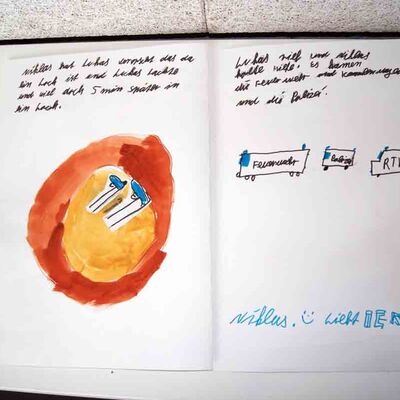 Niklas hat Lukas vorsicht das da
Ein Loch ist und Lukas Lachte
und viel doch 5 min später in
ein Loch.
Lukas rief und niklas
holte Hilfe. Es kamen
die Feuerwehr und Krankenwagen
und die Polizei.
Feuerwehr
Polizei
RT
Niklas. Liebt